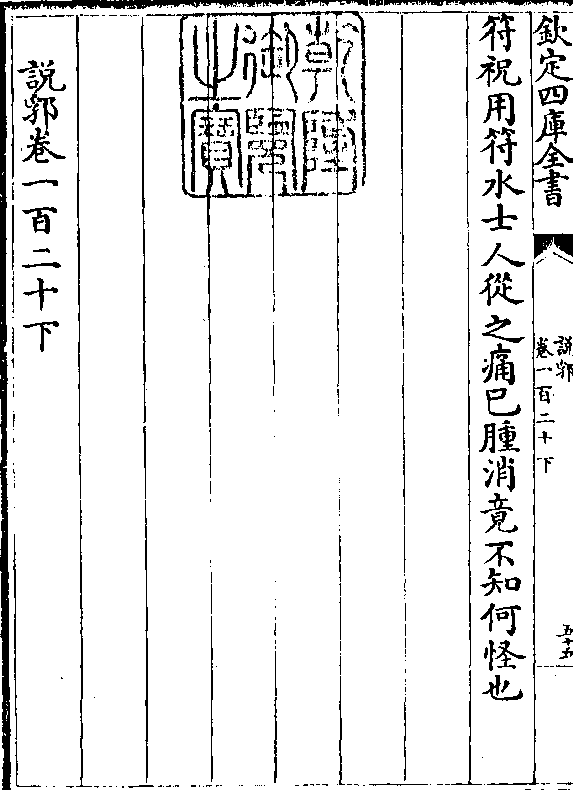 欽定四庫全書
說郛
卷一百二十下
五十五
符祝用符水士人從之痛已腫消竟不知何怪也
乾隆御覽之寶
說郛卷一百二十下